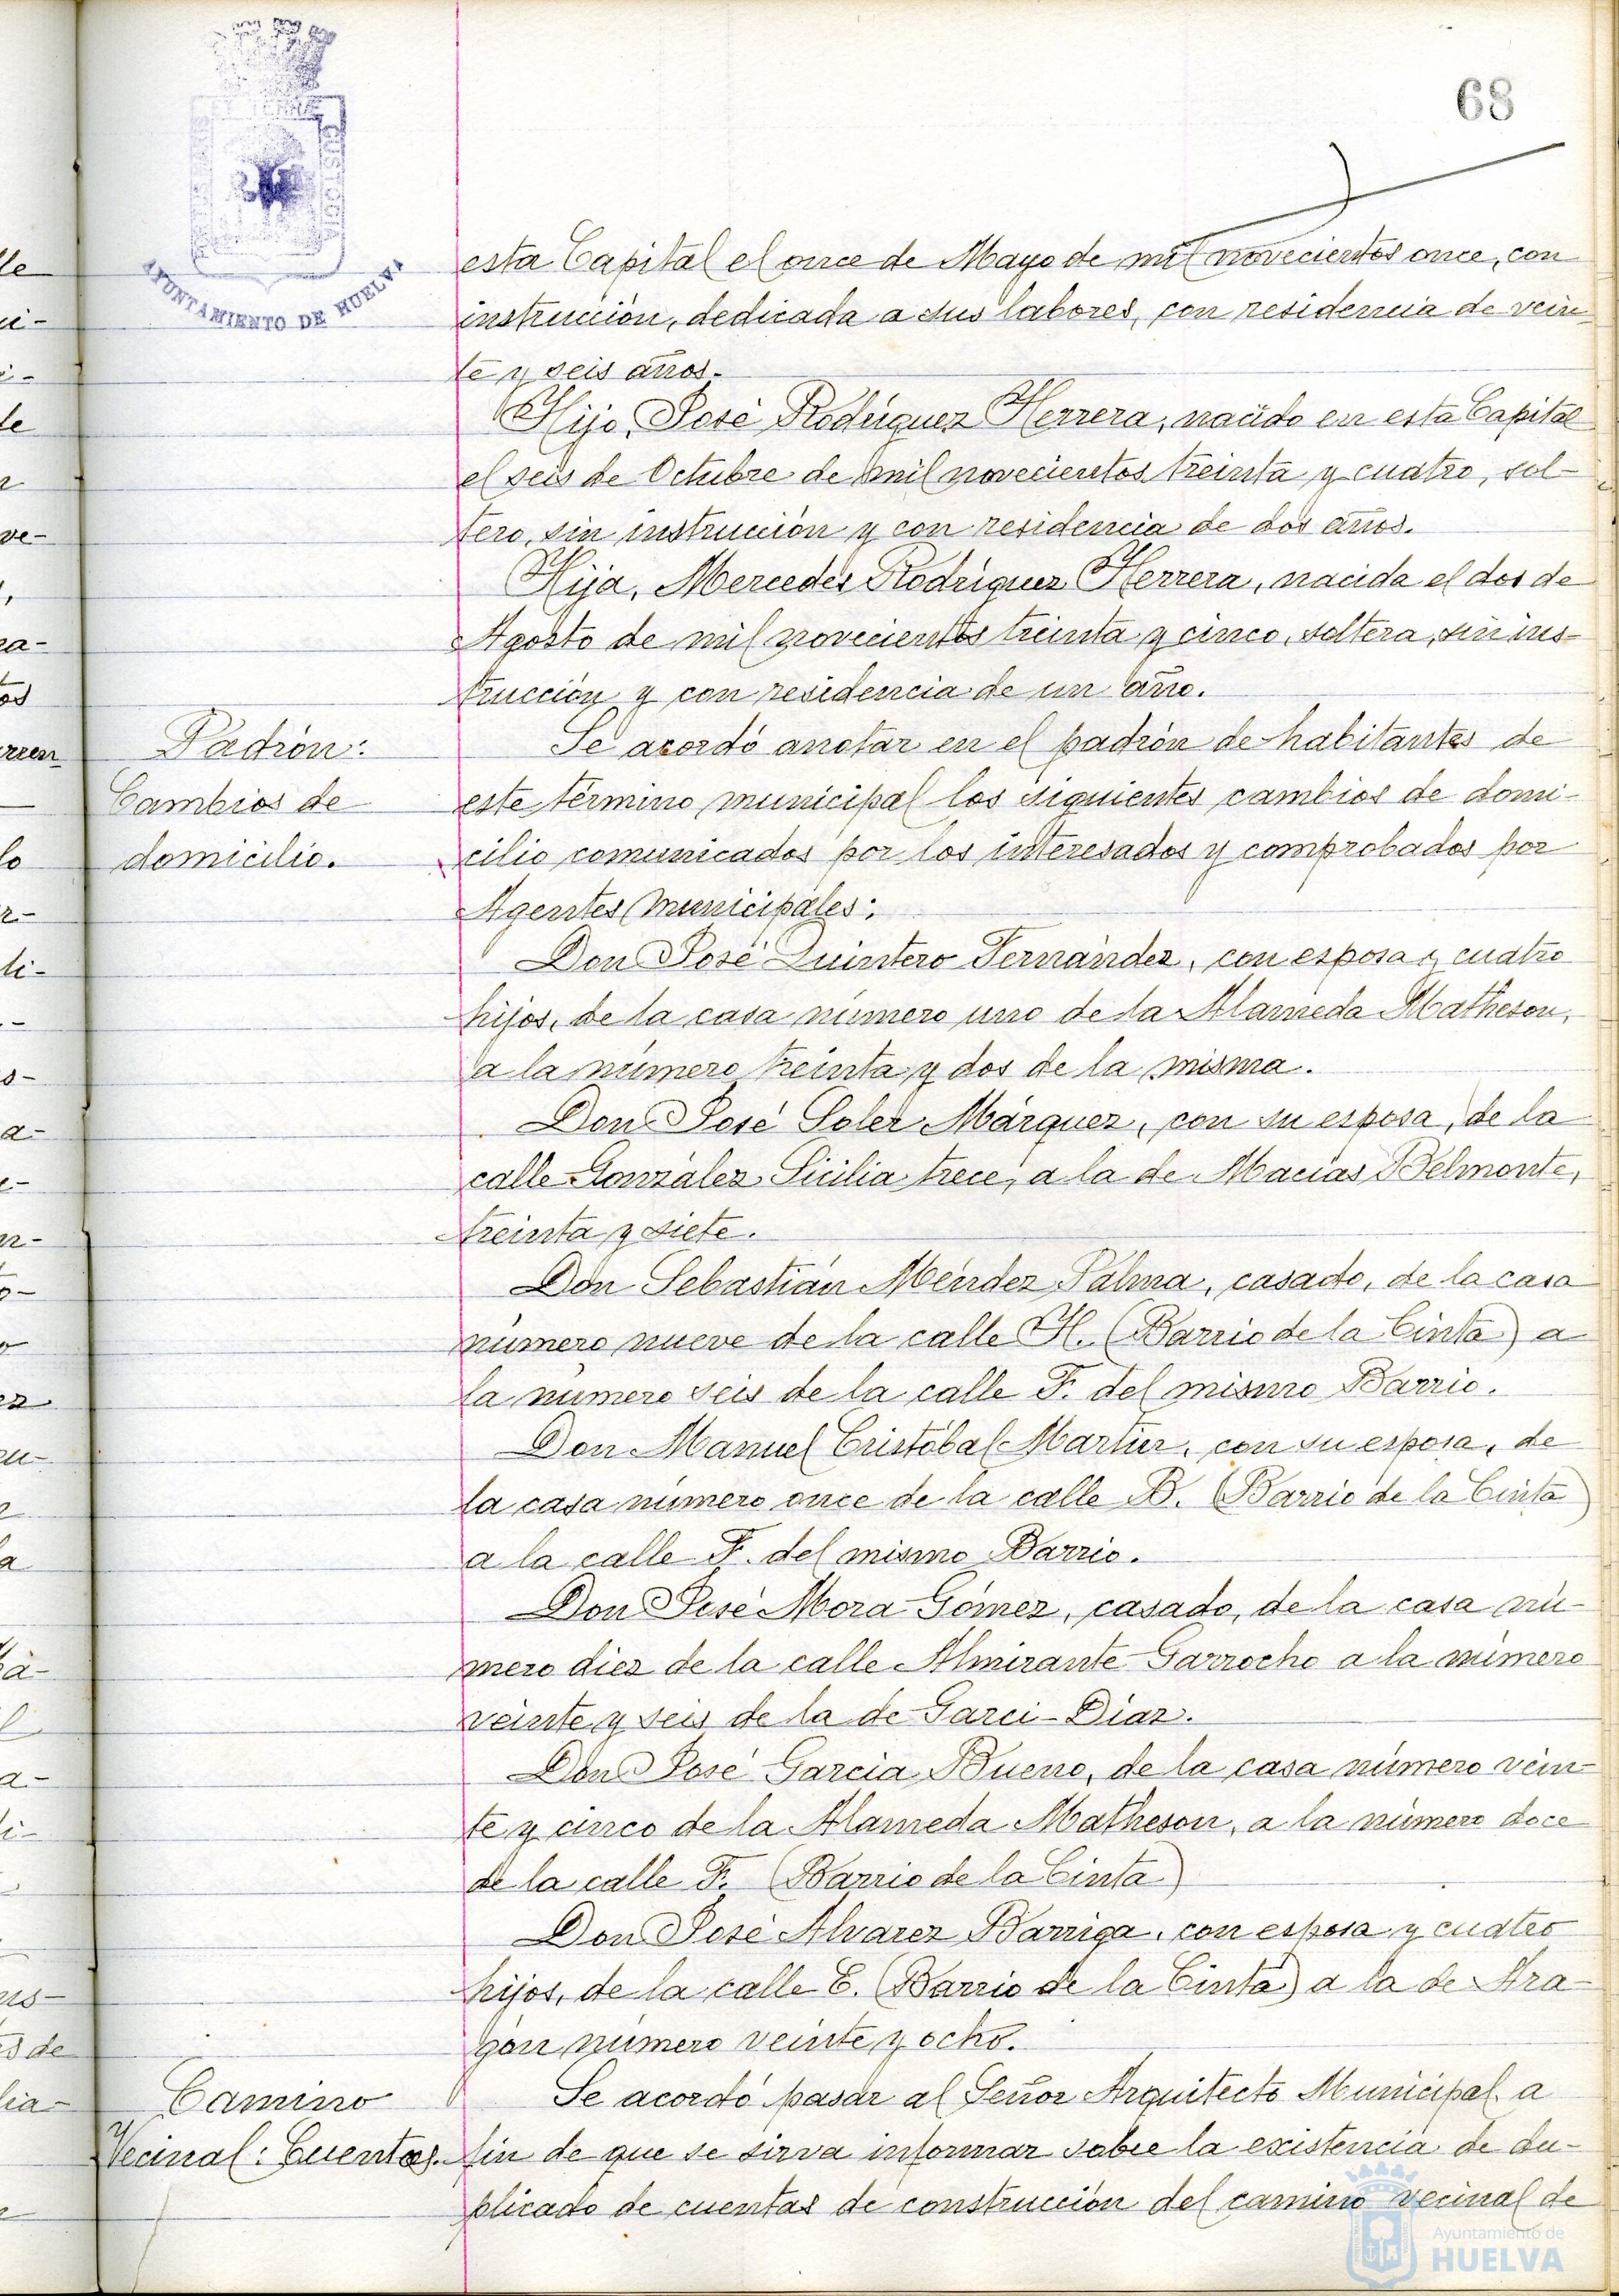 68
PORTUS MARIS ET TERRAE CUSTODIA
AYUNTAMIENTO DE HUELVA
esta Capital el once de Mayo de mil novecientos once, con
instrucción, dedicada a sus labores, con residencia de vein-
te y seis años.
Hijo, José Rodríguez Herrera, nacido en esta Capital
el seis de Octubre de mil novecientos treinta y cuatro, sol-
tero, sin instrucción y con residencia de dos años.
Hija, Mercedes Rodríguez Herrera, nacida el dos de
Agosto de mil novecientos treinta y cinco, soltera, sin ins-
trucción y con residencia de un año.
Padrón:
Cambios de
domicilio.
Se acordó anotar en el padrón de habitantes de
este término municipal los siguientes cambios de domi-
cilio comunicados por los interesados y comprobados por
Agentes Municipales:
Don José Quintero Fernández, con esposa y cuatro
hijos, de la casa número uno de la Alameda Matheson,
a la número treinta y dos de la misma.
Don José Soler Márquez, con su esposa, de la
calle González Sicilia trece, a la de Macías Belmonte,
treinta y siete.
Don Sebastián Méndez Palma, casado, de la casa
número nueve de la calle H. (Barrio de la Cinta) a
la número seis de la calle F. del mismo Barrio.
Don Manuel Cristóbal Martín, con su esposa, de
la casa número once de la calle B. (Barrio de la Cinta)
a la calle F. del mismo Barrio.
Don José Mora Gómez, casado, de la casa nú-
mero diez de la calle Almirante Garrocho a la número
veinte y seis de la de Garci-Díaz.
Don José García Bueno, de la casa número vein-
te y cinco de la Alameda Matheson, a la número doce
de la calle F. (Barrio de la Cinta)
Don José Alvarez Barriga, con esposa y cuatro
hijos, de la calle E. (Barrio de la Cinta) a la de Ara-
gón número veinte y ocho.
Camino
Vecinal: Cuentas.
Se acordó pasar al Señor Arquitecto Municipal a
fin de que se sirva informar sobre la existencia de du-
plicado de cuentas de construcción del camino vecinal de
Ayuntamiento de
HUELVA